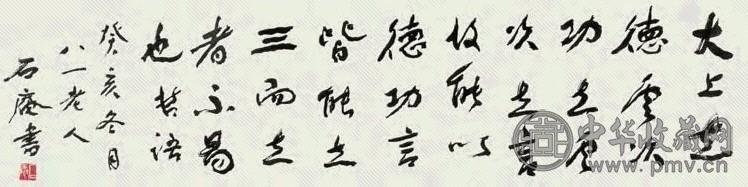 大上
德其次
功立
次立言
能以
德功言
皆能立
三而立
者不易
也哲语
癸亥冬月
八一老人
石庵書
中华收藏网
www.pmv.cn